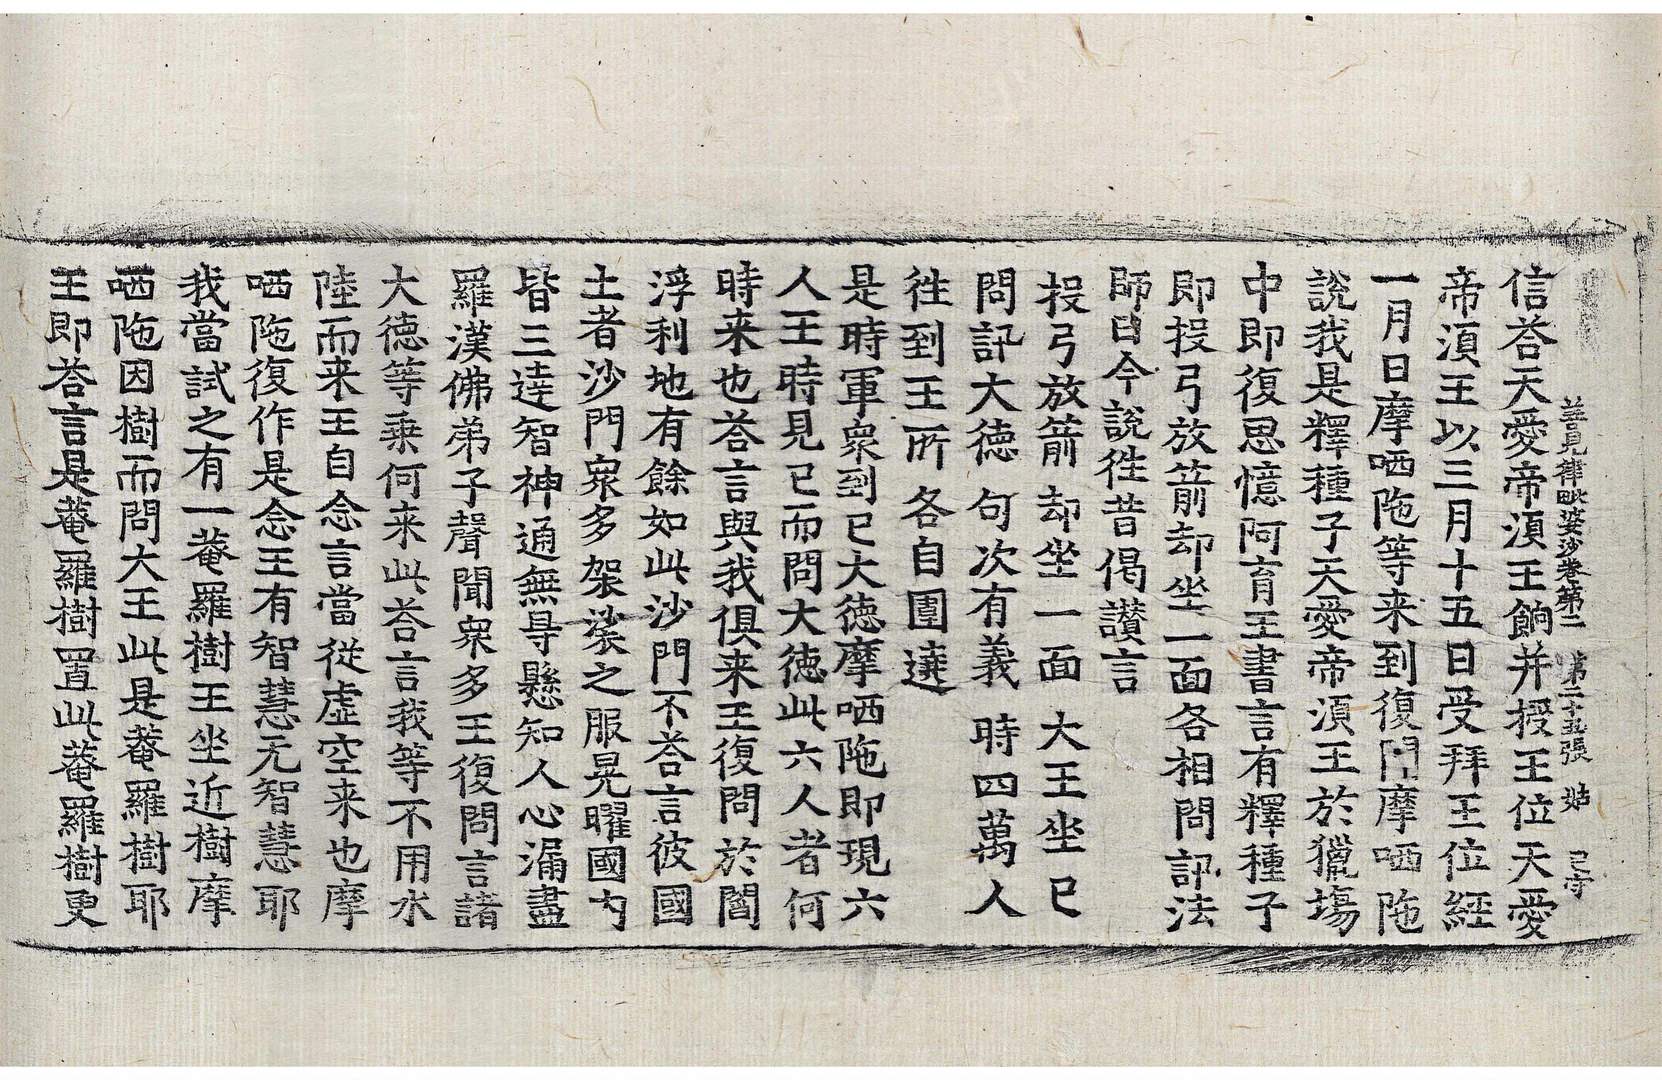 善見律毗婆沙卷第二　第二十五張　姑　已守
信荅天愛帝湏王餉并授王位天愛
帝湏王以三月十五日受拜王位經
一月日摩哂陁等来到復聞摩哂陁
說我是釋種子天愛帝湏王於獵塲
中即復思憶阿育王書言有釋種子
即投弓放箭却坐一面各相問訊法
師曰今說徃昔偈讃言
投弓放箭　却坐一面　大王坐已
問訊大德　句次有義　時四萬人
徃到王所　各自圍遶
是時軍衆到已大德摩哂陁即現六
人王時見已而問大德此六人者何
時来也荅言與我俱来王復問於閻
浮利地有餘如此沙門不荅言彼國
土者沙門衆多袈裟之服晃曜國內
皆三達智神通無㝵懸知人心漏盡
羅漢佛弟子聲聞衆多王復問言諸
大德等乗何来此荅言我等不用水
陸而来王自念言當從虛空来也摩
哂陁復作是念王有智慧无智慧耶
我當試之有一菴羅樹王坐近樹摩
哂陁因樹而問大王此是菴羅樹耶
王即荅言是菴羅樹置此菴羅樹更